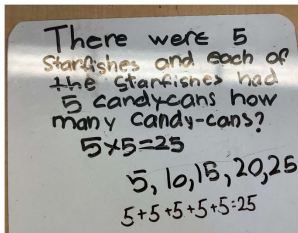 There were 5
Starfishes and each of
the starfishes had
5 candycans how
many candy-cans?
5×5=25
5, 10, 15, 20, 25
5+5+5+5+5=25